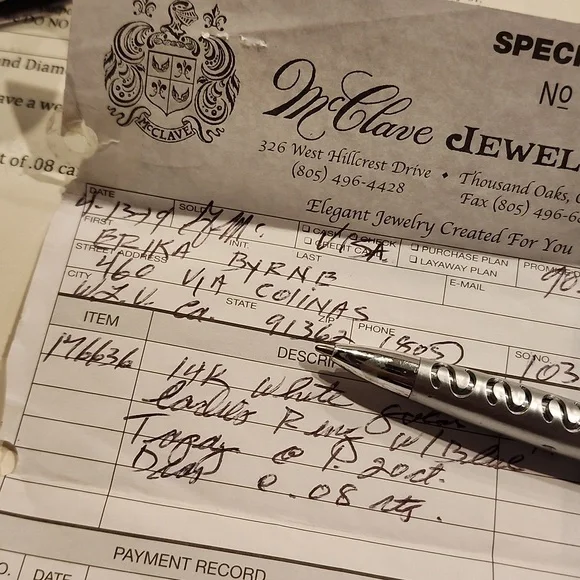 DO NO
nd Diam
ave a we
t of .08 ca
SPECI
McCLAVE
No
McClave JEWEL
326 West Hillcrest Drive • Thousand Oaks, C
(805) 496-4428 Fax (805) 496-6
Elegant Jewelry Created For You
DATE SOLD
CASH CHECK
CREDIT CA VISA
PURCHASE PLAN
LAYAWAY PLAN
PROMIS
FIRST INIT. LAST
ERIKA BYRNE
E-MAIL
STREET ADDRESS
460 VIA COLINAS
CITY STATE ZIP PHONE SO NO.
W.L.V. Ca. 91362 (805) 103
ITEM DESCRI
176636 14K White
Ladies Ring w/ Blue
Topaz @ 1.20ct.
Dias @ .08 cts.
PAYMENT RECORD
O. DATE